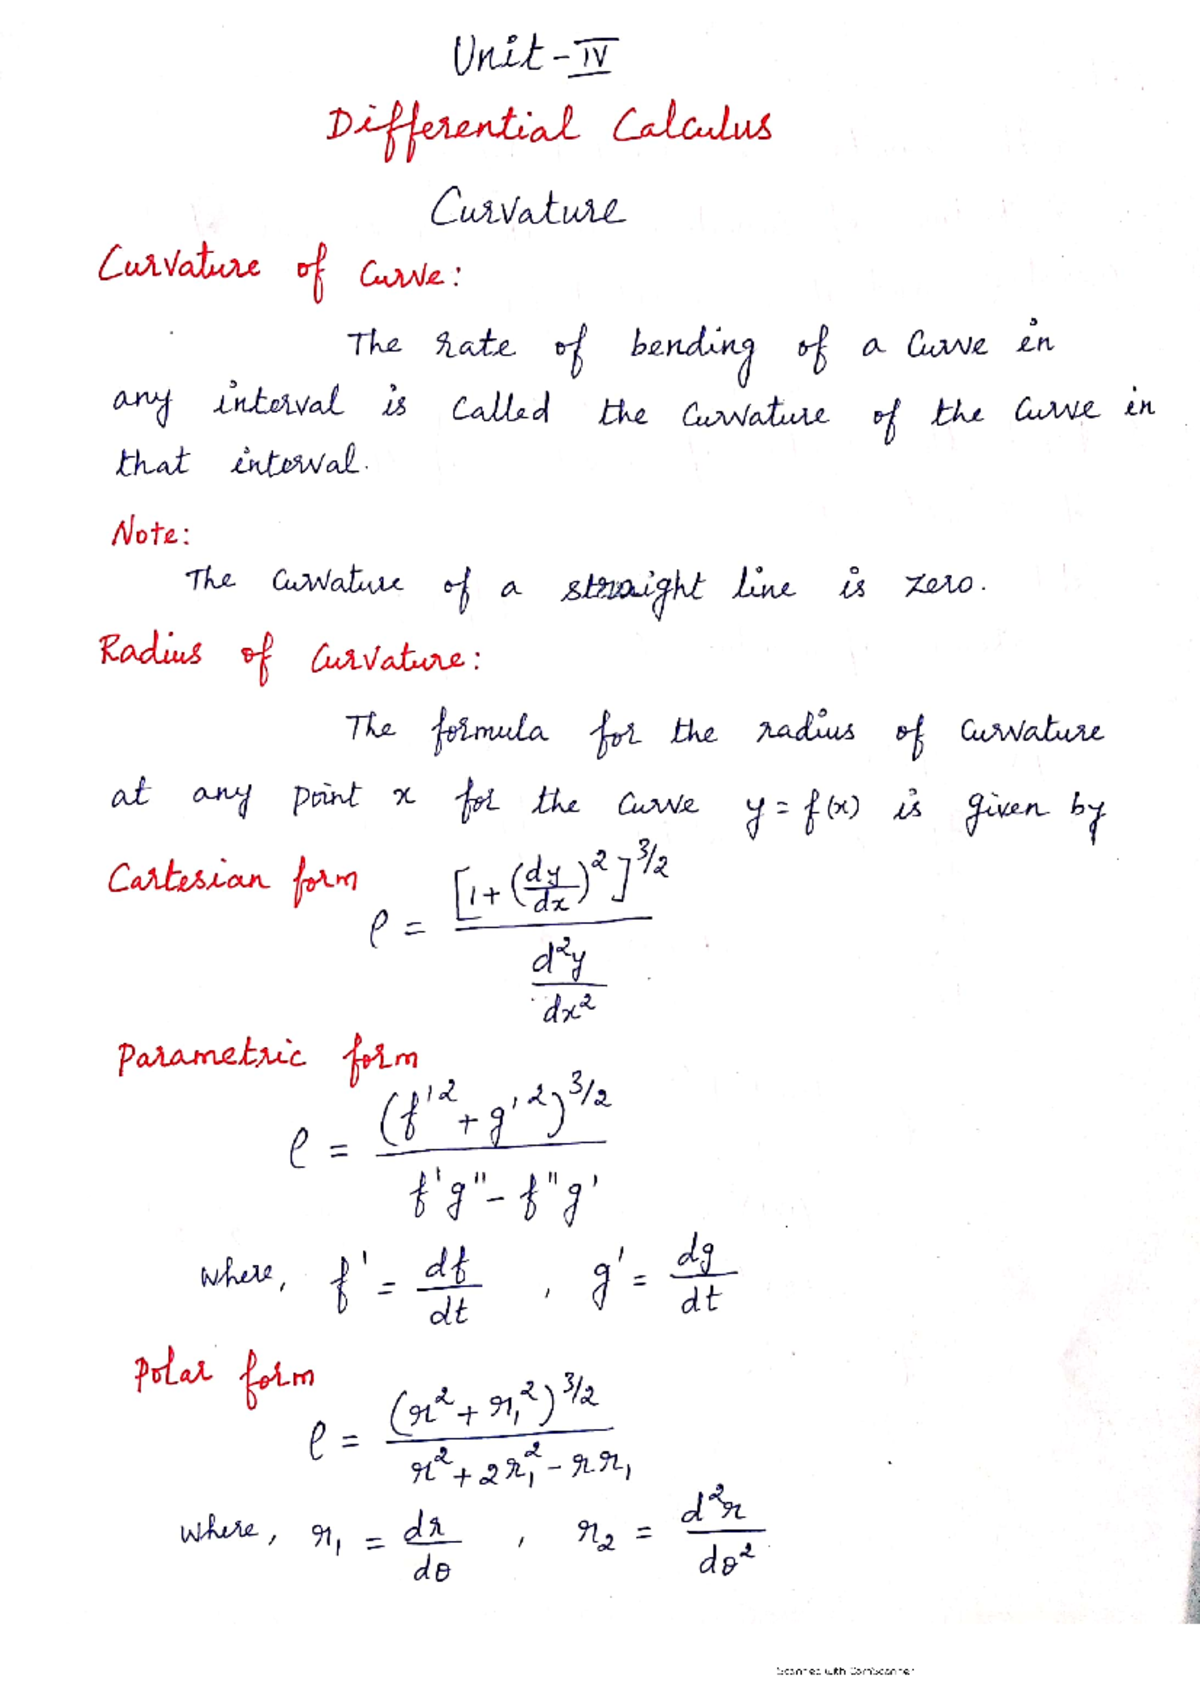 Unit - IV
Differential Calculus
Curvature
Curvature of Curve:
The rate of bending of a Curve in
any interval is called the Curvature of the Curve in
that interval.
Note:
The Curvature of a straight line is zero.
Radius of Curvature:
The formula for the radius of Curvature
at any point x for the Curve y = f(x) is given by
Cartesian form
ρ = [1 + (dy/dx)²]^3/2 / (d²y/dx²)
Parametric form
ρ = (f'² + g'²)^3/2 / (f'g'' - f''g')
where, f' = df/dt , g' = dg/dt
Polar form
ρ = (r² + r₁²)^3/2 / (r² + 2r₁² - r r₁)
where, r₁ = dr/dθ , r₂ = d²r/dθ²
Scanned with CamScanner